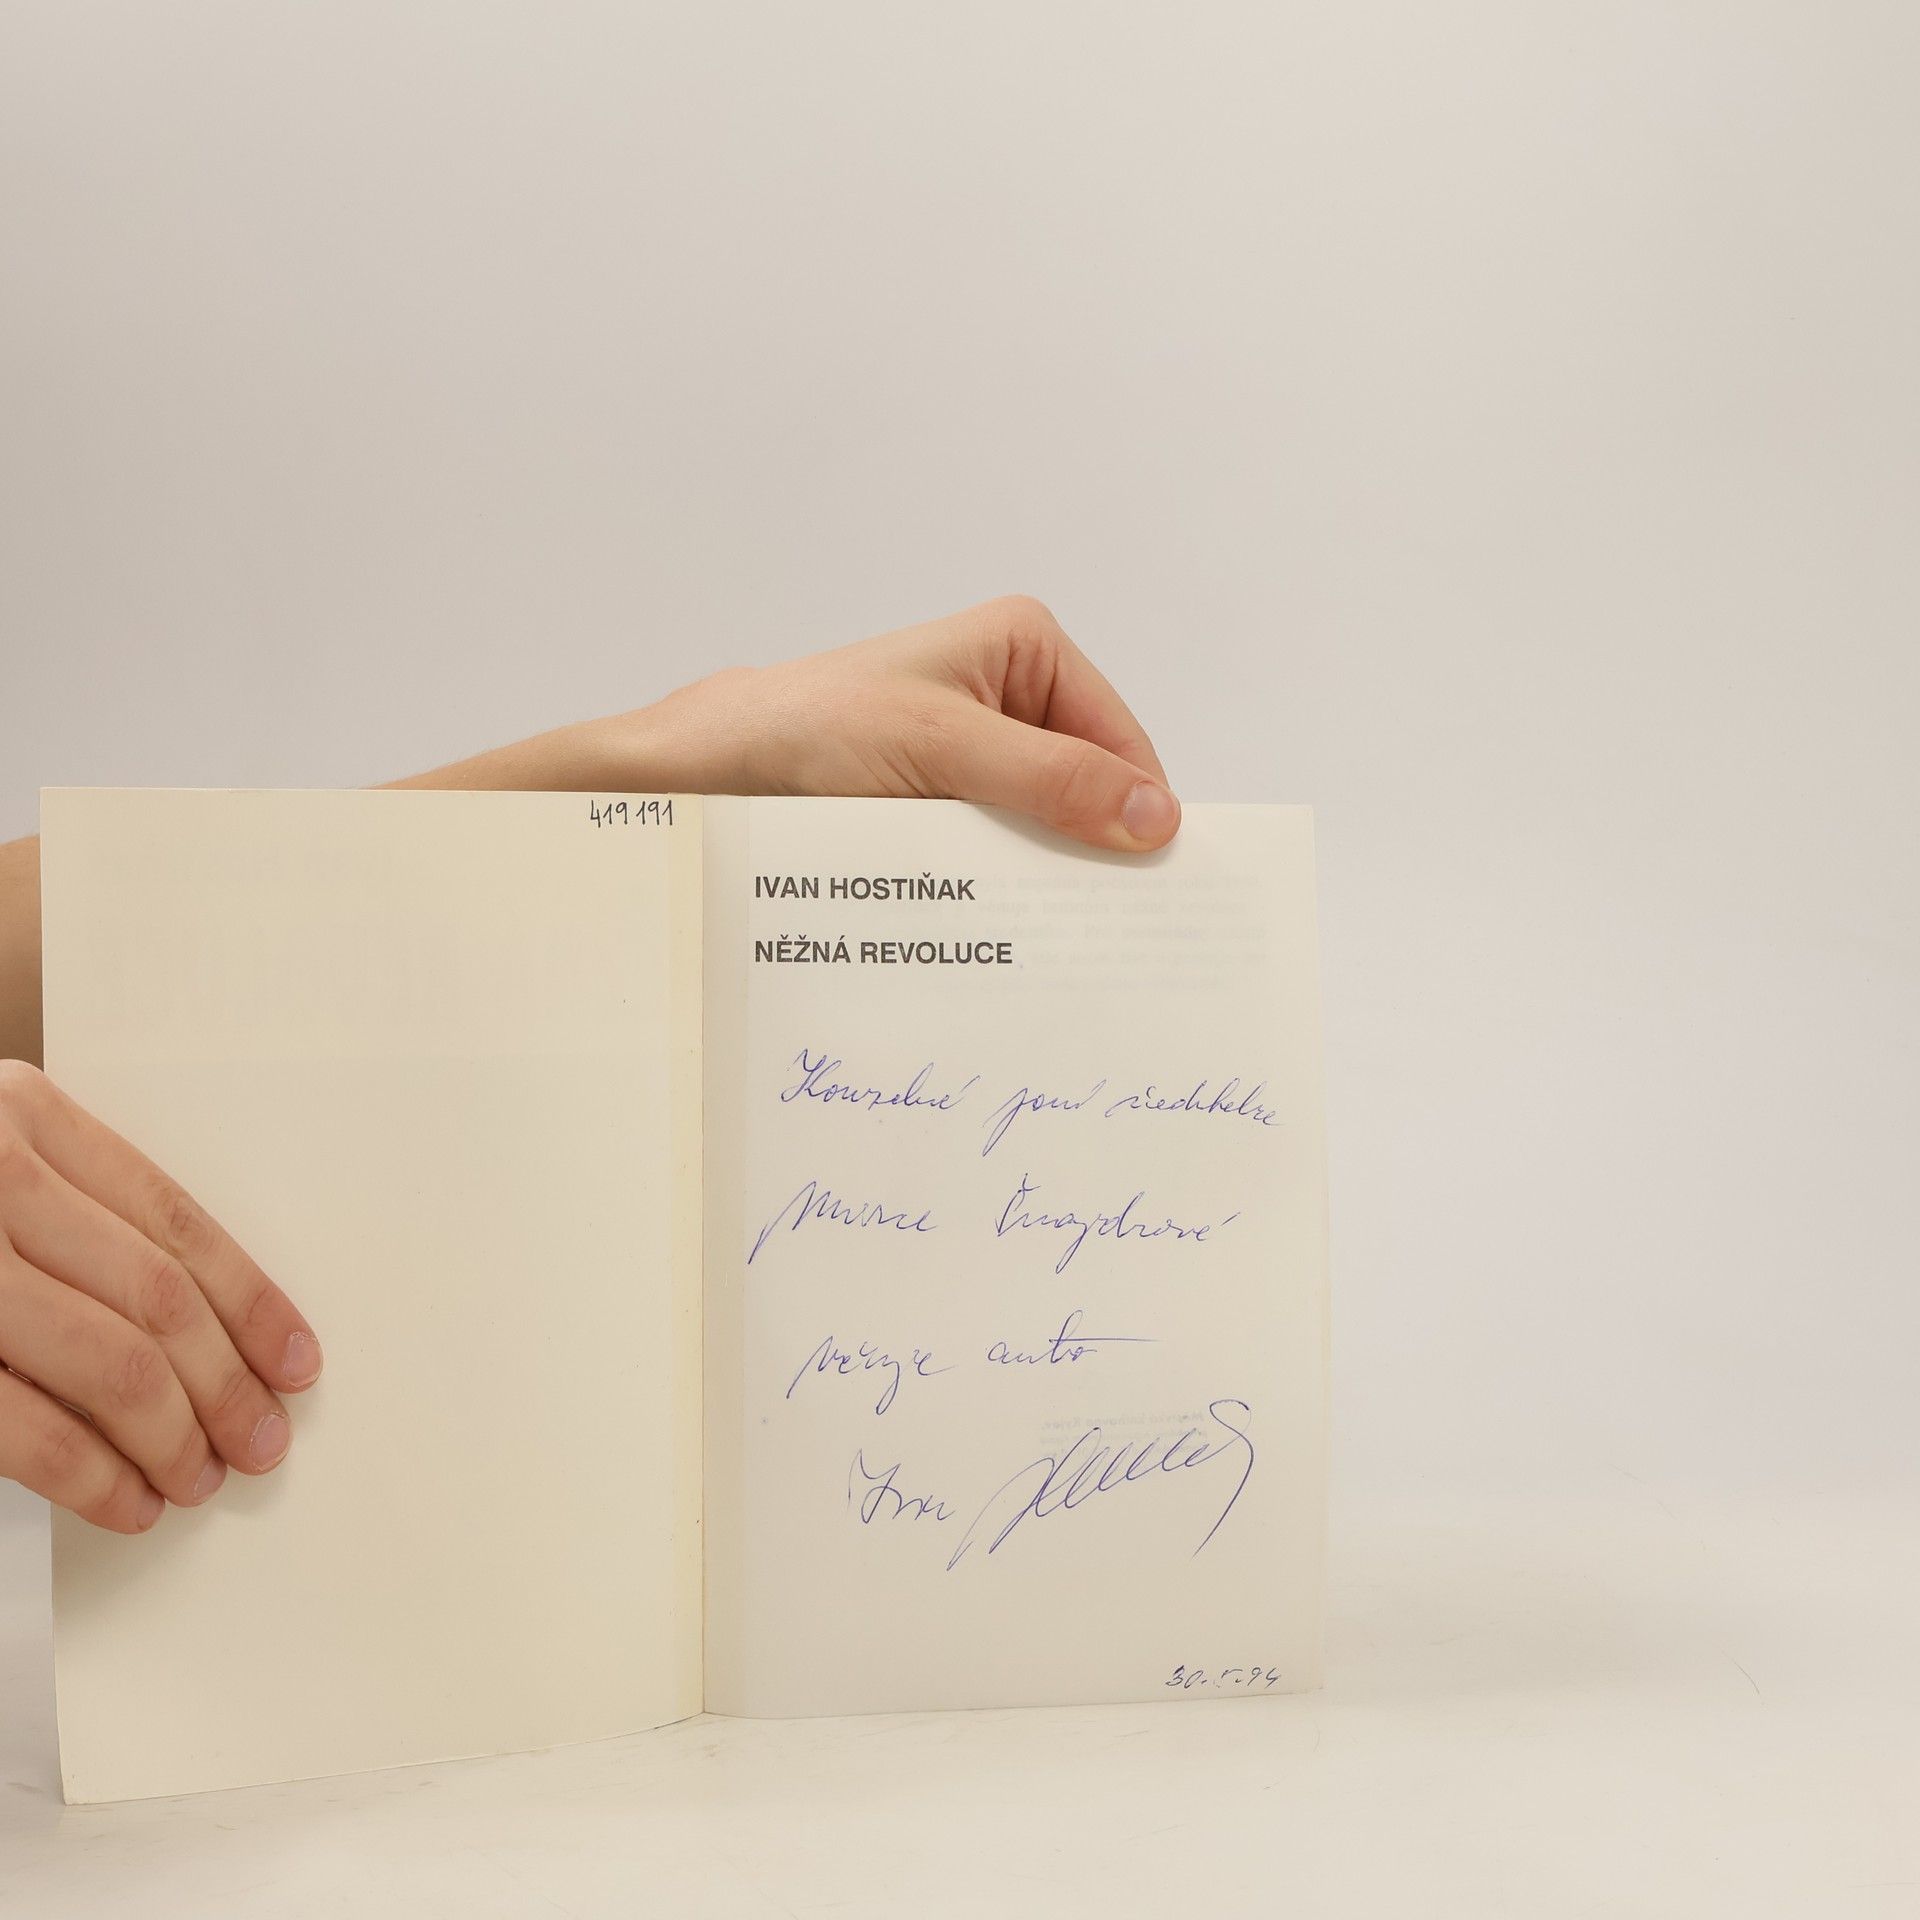 419191
IVAN HOSTIŇAK
NĚŽNÁ REVOLUCE
Kouzelné paní ředitelce
Šnajdrové
věnuje autor
Ivan
30.5.94